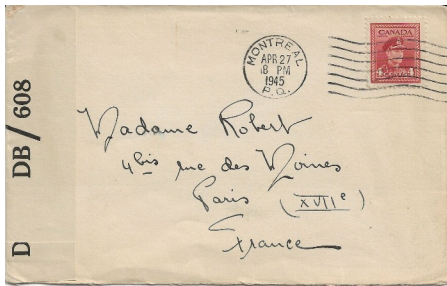 D DB/608
MONTREAL
APR 27
8 PM
1945
P.Q.
CANADA
4 4
Madame Robert
4bis rue des Moines
Paris (XVIIe)
France